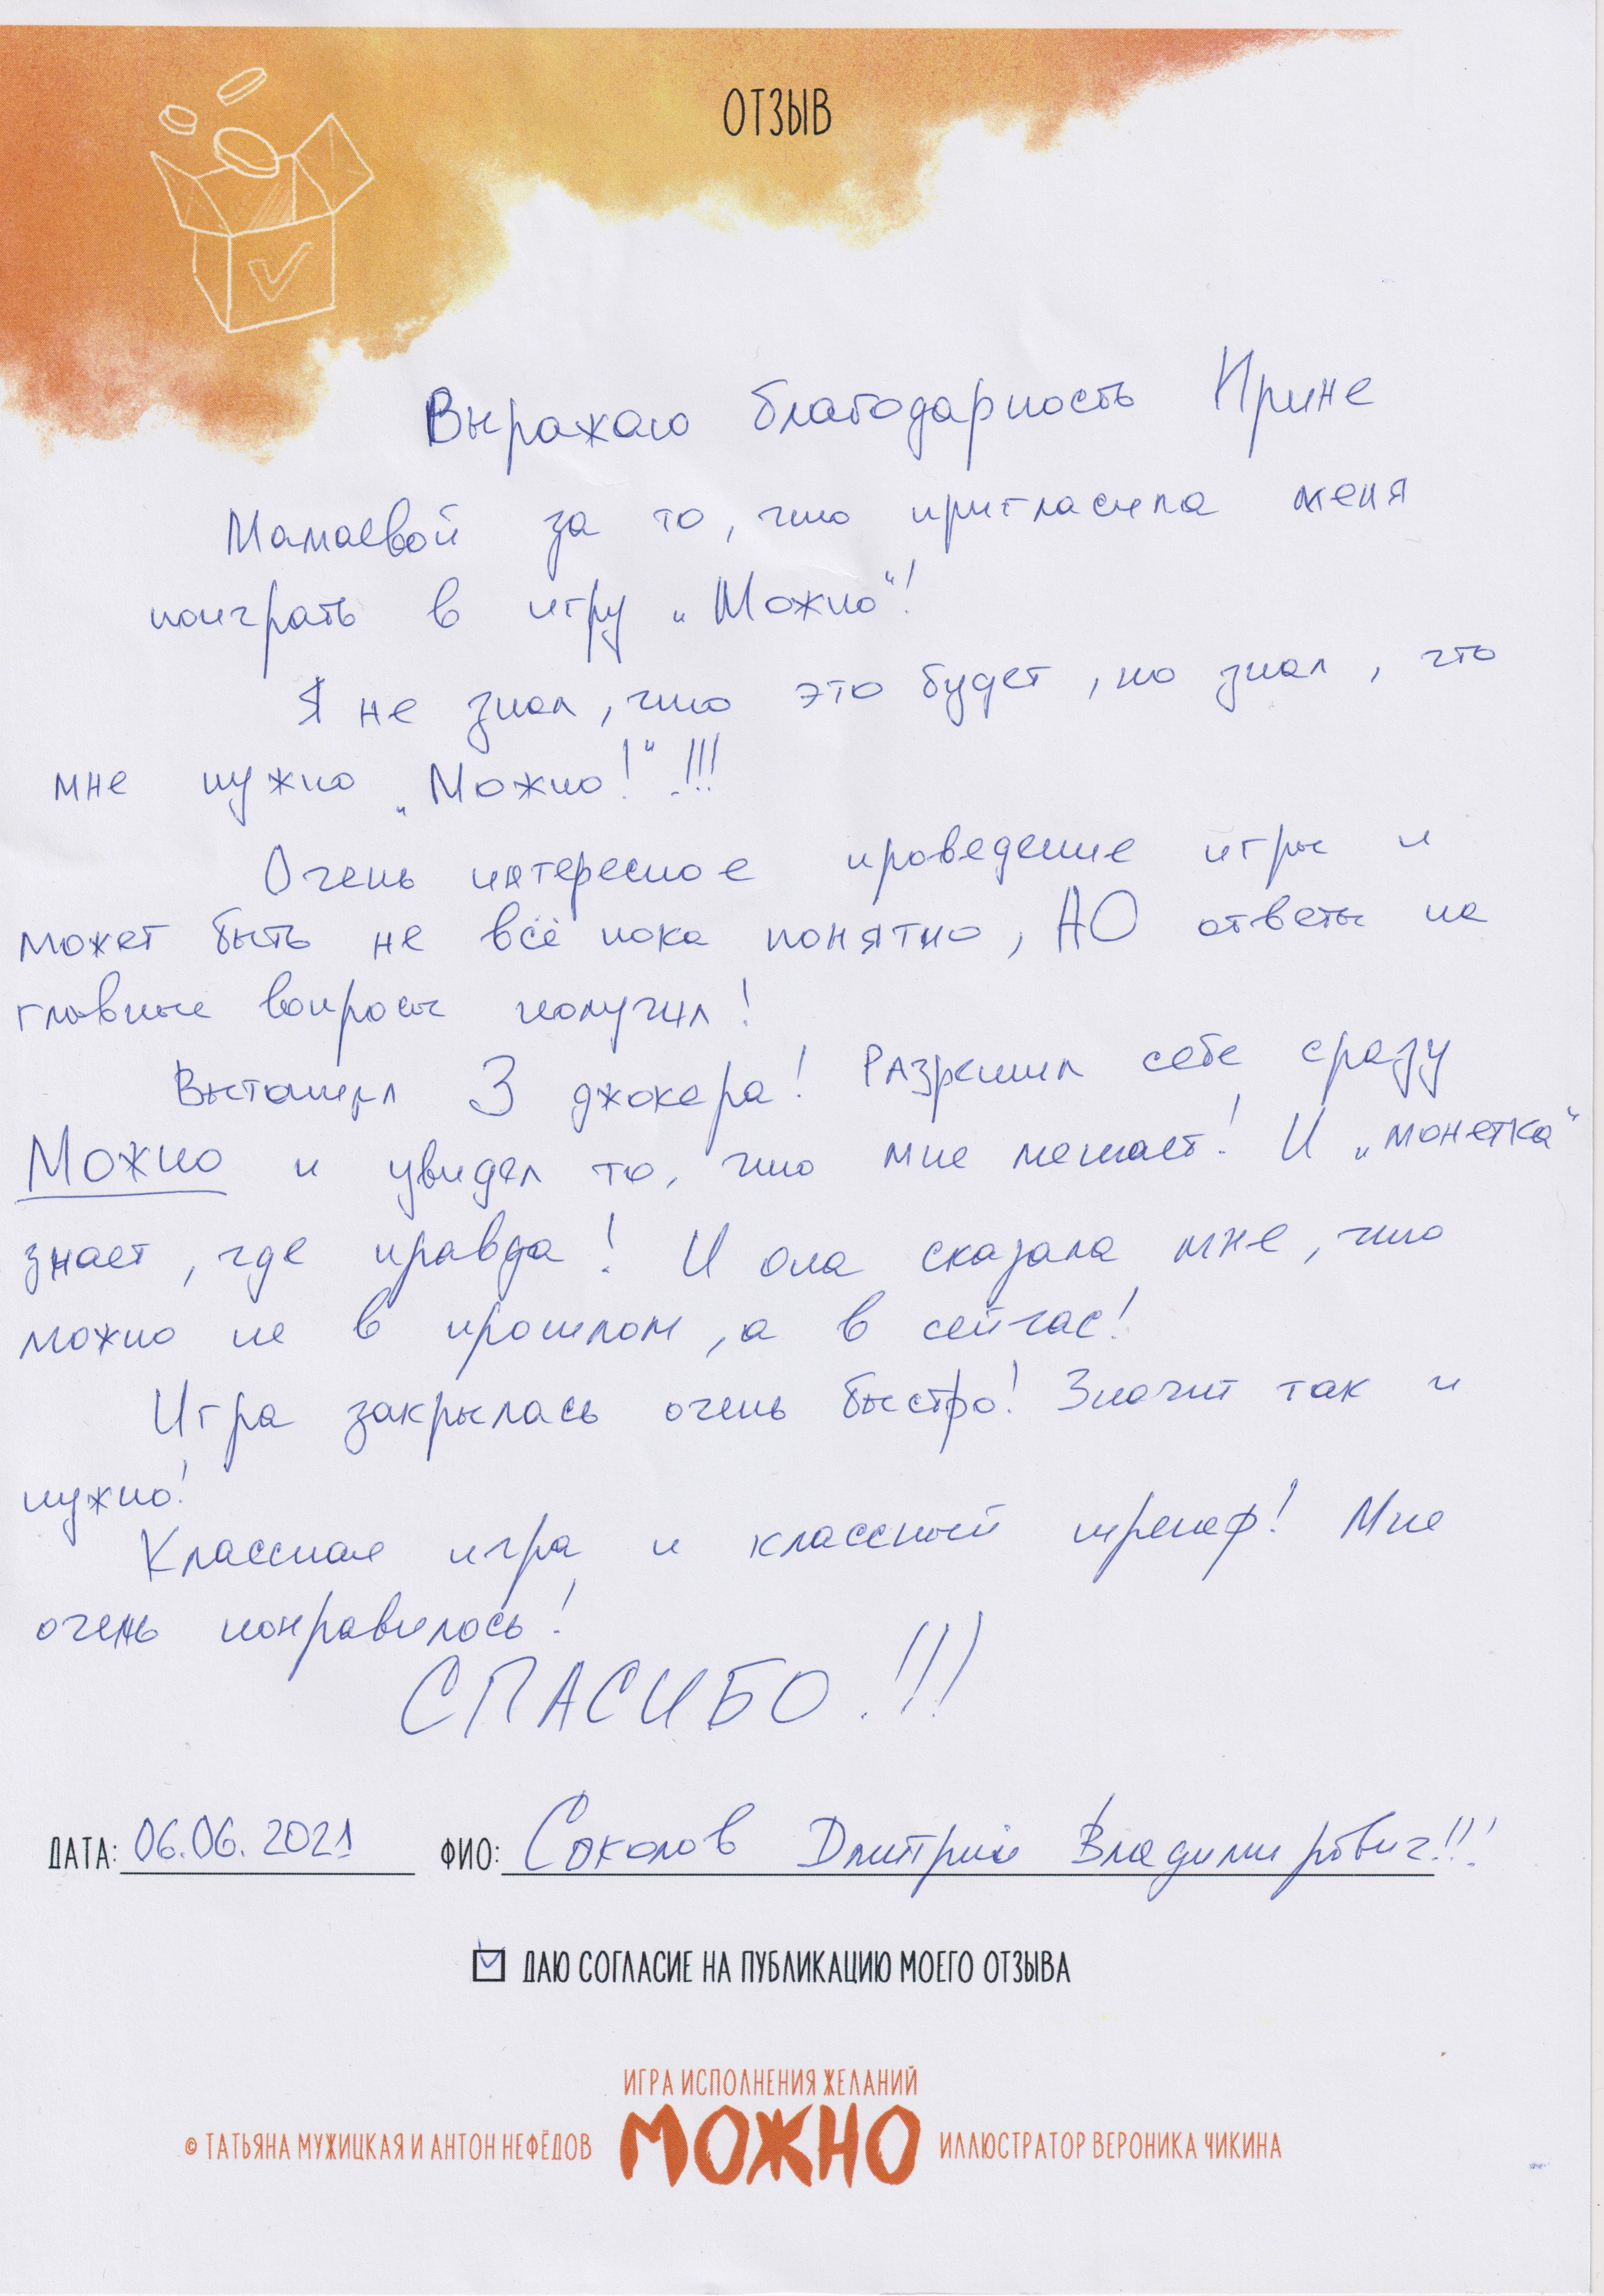 ОТЗЫВ
Выражаю благодарность Ирине
Мамаевой за то, что пригласила меня
поиграть в игру „Можно“!
Я не знал, что это будет, но знал, что
мне нужно „Можно!“!!!
Очень интересное проведение игры и
может быть не всё пока понятно, НО ответы на
главные вопросы получил!
Вытащил 3 джокера! Разрешил себе сразу
Можно и увидел то, что мне мешает! И „монетка“
знает, где правда! И она сказала мне, что
можно не в прошлом, а в сейчас!
Игра закрылась очень быстро! Значит так и
нужно!
Классная игра и классный тренер! Мне
очень понравилось!
СПАСИБО!!!
ДАТА: 06.06.2021 ФИО: Соколов Дмитрий Владимирович!!!
ДАЮ СОГЛАСИЕ НА ПУБЛИКАЦИЮ МОЕГО ОТЗЫВА
ИГРА ИСПОЛНЕНИЯ ЖЕЛАНИЙ
© ТАТЬЯНА МУЖИЦКАЯ И АНТОН НЕФЁДОВ МОЖНО ИЛЛЮСТРАТОР ВЕРОНИКА ЧИКИНА